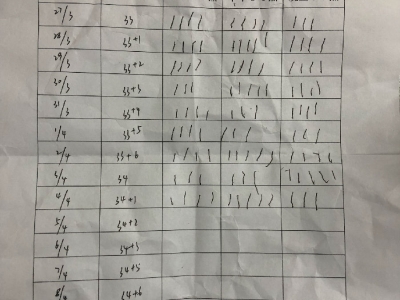 27/3 33 |||| |||| |||
28/3 33+1 |||| |||| ||||
29/3 33+2 |||| |||| ||||
30/3 33+3 ||| |||| ||||
31/3 33+4 |||| ||| ||||
1/4 33+5 |||| ||| |||
2/4 33+6 |||| ||||| ||||
3/4 34 ||| ||| |||||
4/4 34+1 |||| |||| |||
5/4 34+2
6/4 34+3
7/4 34+5
8/4 34+6